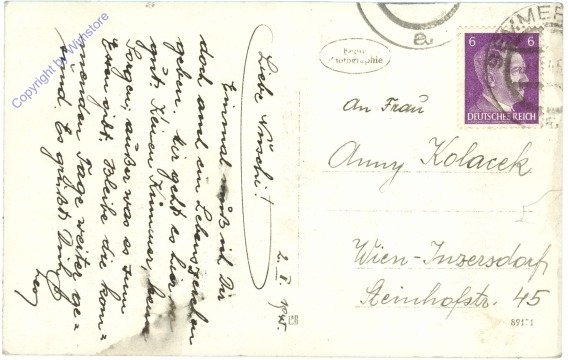 Copyright by Wishstore
2. V. 1945.
Liebe Nuschi!
Einmal muß ich Dir
doch auch ein Lebenszeichen
geben. Mir geht es hier
gut. Keinen Kummer, keine
Sorgen, außer was es zum
Essen gibt. Bleibe die kom=
menden Tage weiter ge=
sund. Es grüßt Dich
Echte
Photographie
a.
SEMMER
6 6
DEUTSCHES REICH
An Frau
Anny Kolacek
Wien-Inzersdorf
Steinhofstr. 45